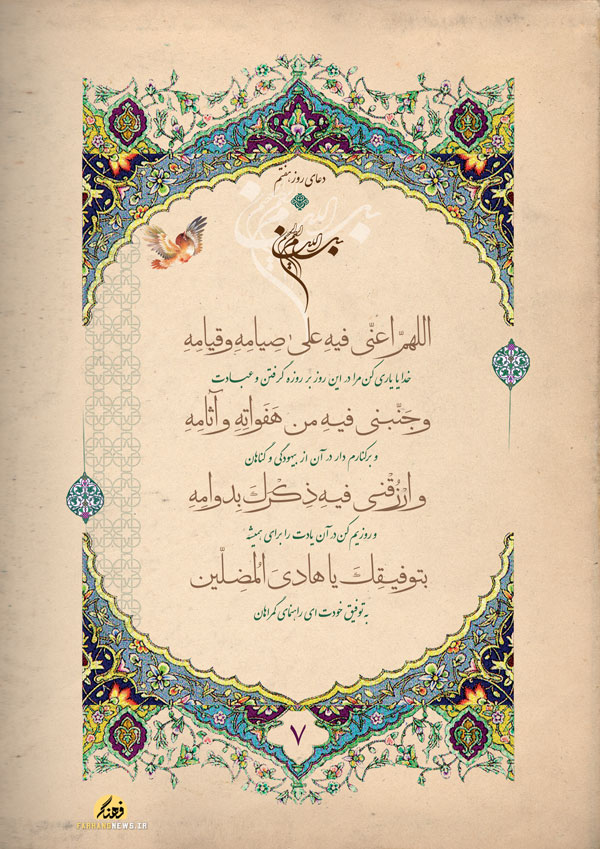 دعای روز هفتم
بسم الله الرحمن الرحیم
اللهمّ اعنّی فیهِ علیٰ صِیامِهِ و قیامِهِ
خدایا یاری کن مرا در این روز بر روزه گرفتن و عبادت
و جَنِّبنی فیهِ من هَفَواتِهِ و آثامِهِ
و برکنارم دار در آن از بیهودگی و گناهان
و ارْزُقنی فیهِ ذِکْرَكَ بِدوامِهِ
و روزیم کن در آن یادت را برای همیشه
بتوفیقِكَ یا هادیَ المُضِلّین
به توفیق خودت ای راهنمای گمراهان
۷
فرهنگ
FARHANGNEWS.IR